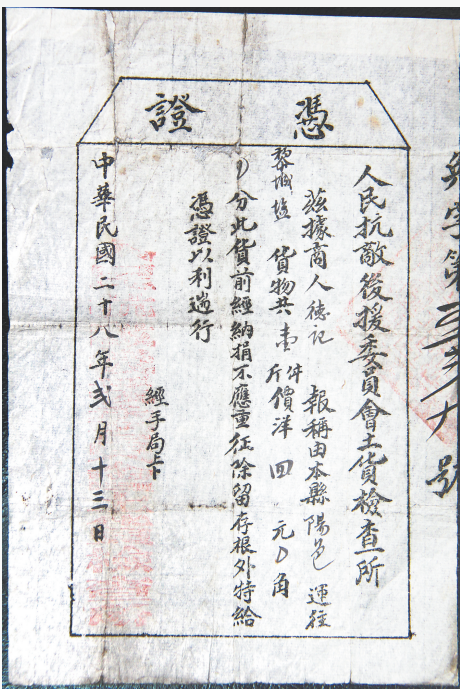 憑證
字第
號
人民抗敵後援委員會土貨檢查所
茲據商人德記 報稱由本縣陽邑 運往
黎城 鹽 貨物共壹件斤價洋四元0角
0分此貨前經納捐不應重征除留存根外特給
憑證以利遄行
經手局卡
中華民國二十八年弍月十三日